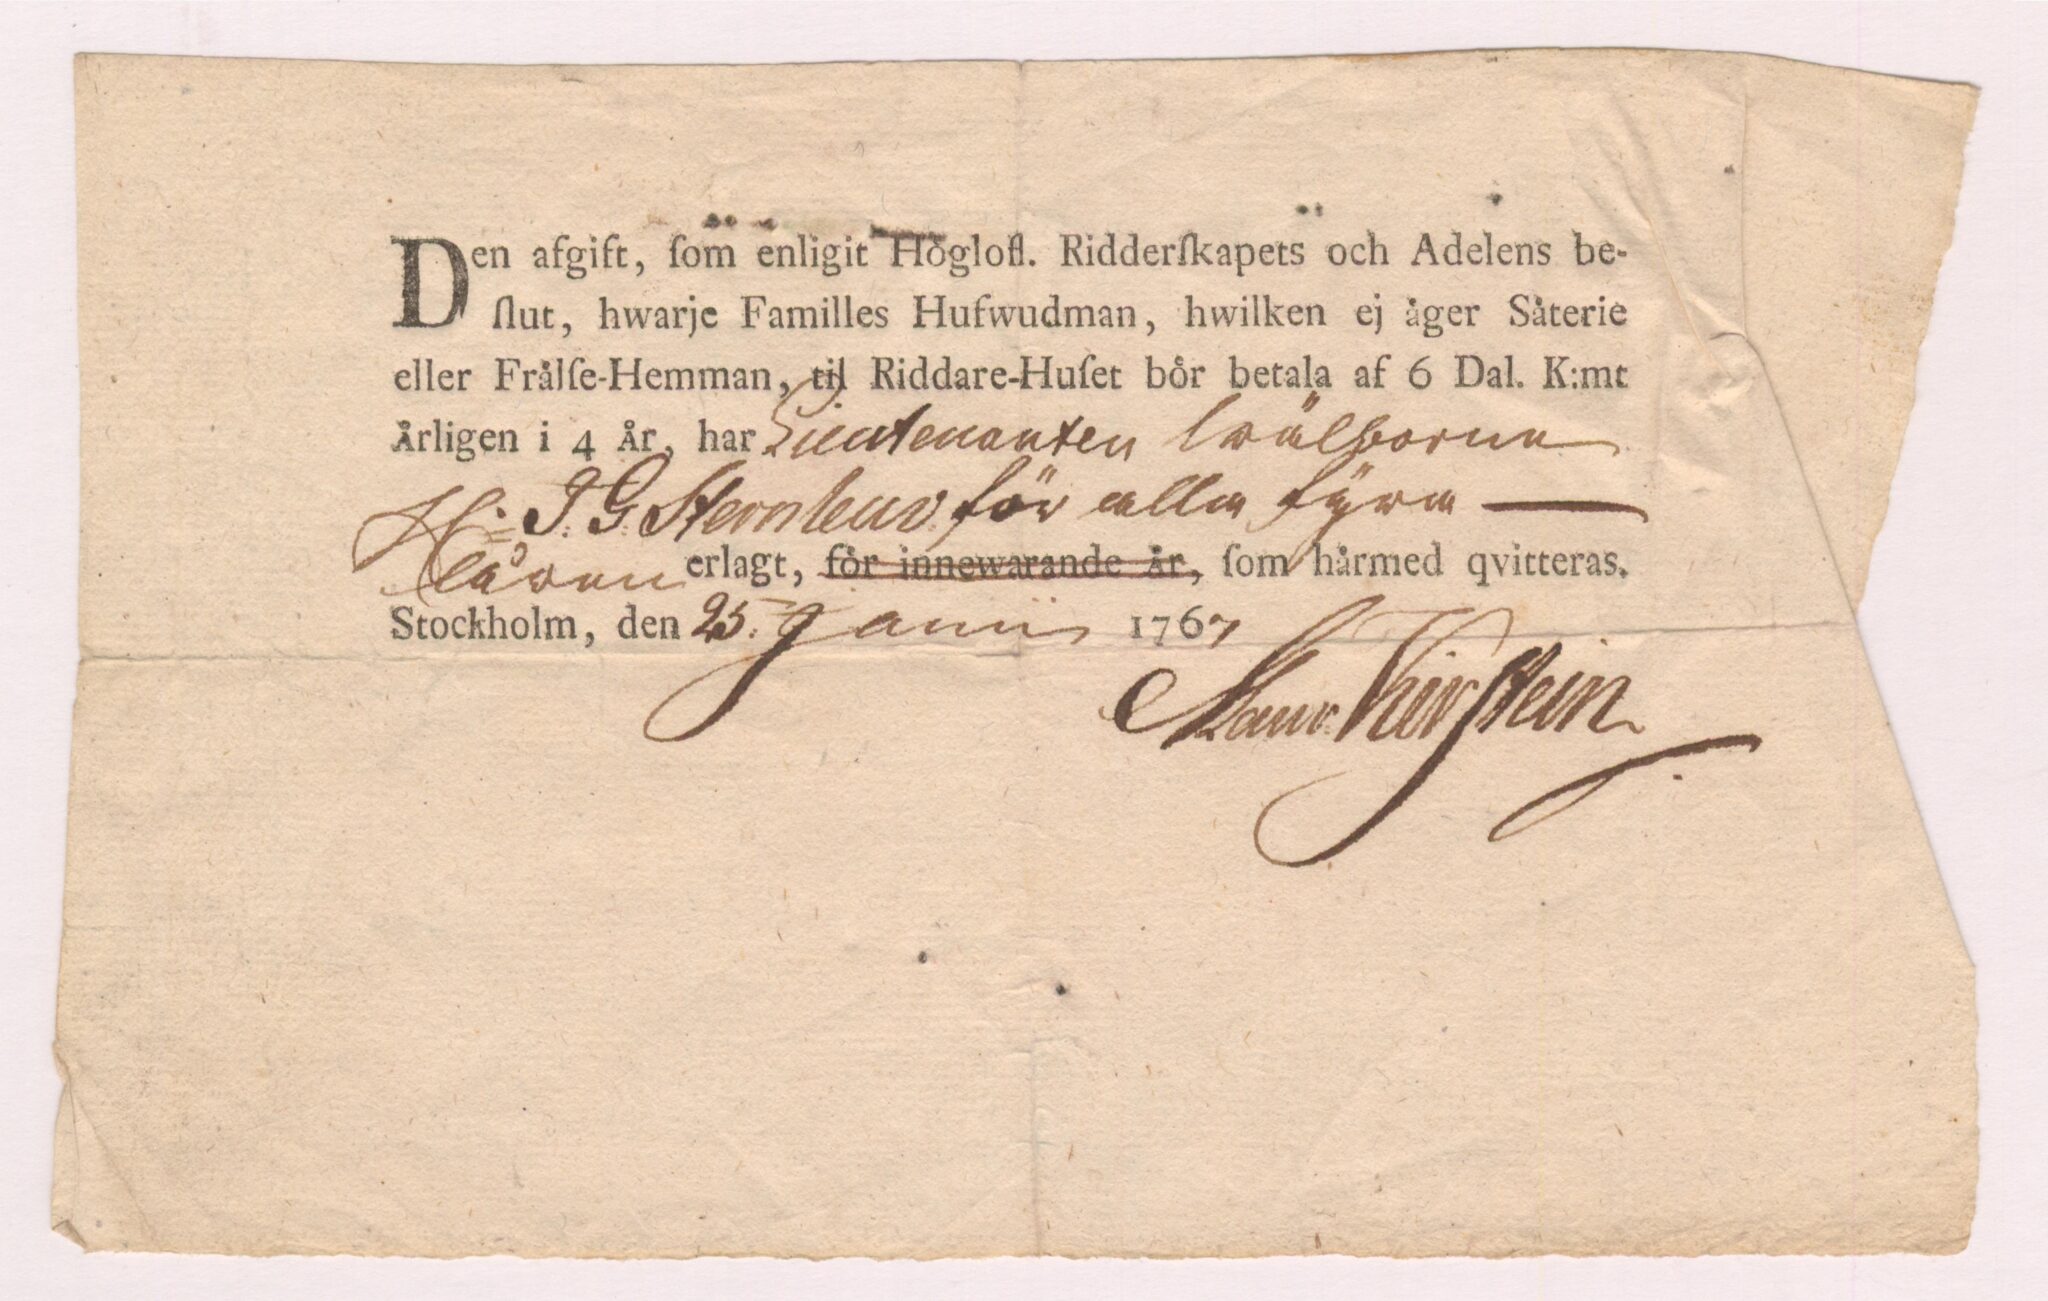 Den afgift, ſom enligit Höglofl. Ridderſkapets och Adelens be-
ſlut, hwarje Familles Hufwudman, hwilken ej åger Såterie
eller Frålſe-Hemman, til Riddare-Huſet bör betala af 6 Dal. K:mt
Årligen i 4 År, har Lieutenanten Wälborne
H: J. G. Sternleuv för alla fÿra
åren erlagt, för innewarande År, ſom hårmed qvitteras.
Stockholm, den 25. Junii 1767
Maur: Kirstein